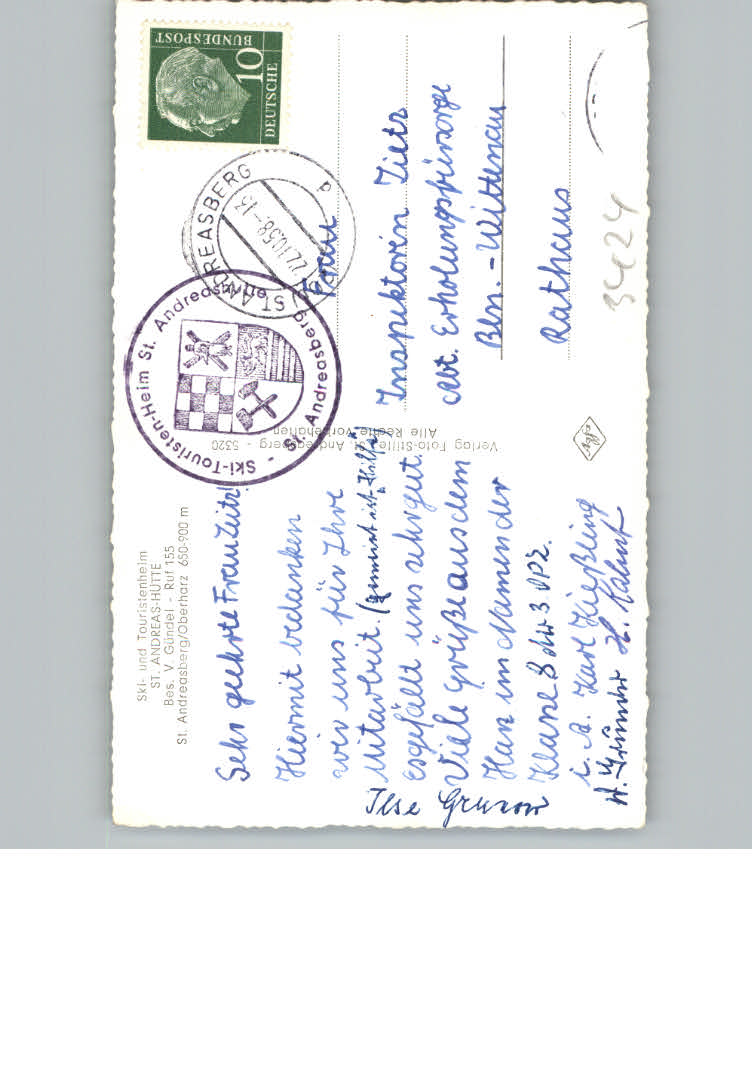 Ski- und Touristenheim
ST. ANDREAS-HÜTTE
Bes. V. Gündel - Ruf 155
St. Andreasberg/Oberharz 650-900 m
Sehr geehrte Frau Zeitz!
Hiermit bedanken
wir uns für Ihre
Mitarbeit. (gemeint ist Hilfe)
es gefällt uns sehr gut.
Viele Grüße aus dem
Harz im Namen der
Klasse 8 der 3. OPZ.
i. A. Karl Kießling
H. Kahnt
Ilse Grunow
Verlag Foto-Stille, St. Andreasberg - 5320
Alle Rechte vorbehalten
Agfa
DEUTSCHE
BUNDESPOST
10
ST. ANDREASBERG
22.10.58-13
d
Ski-Touristen-Heim St. Andreashütte
- St. Andreasberg -
Frau
Inspektorin Zietz
Abt. Erholungsfürsorge
Bln.-Wittenau
Rathaus
34e24